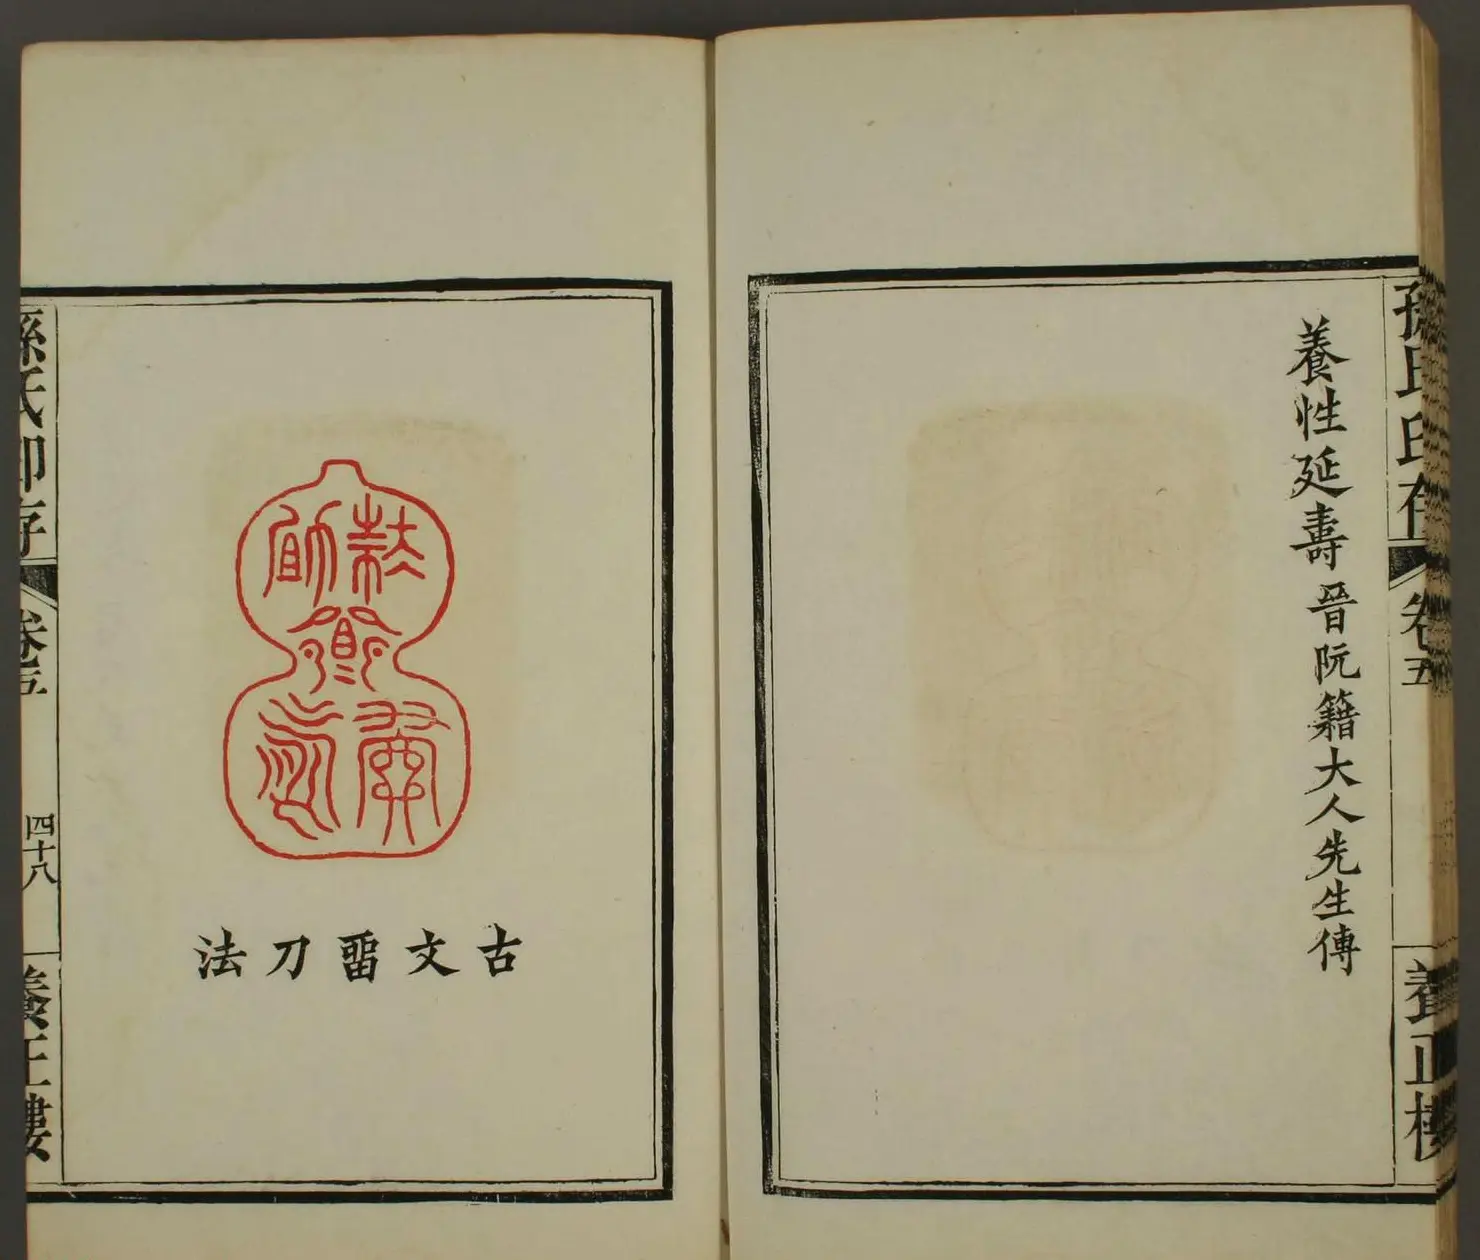 孫氏印存
卷五
養正樓
養性延壽晉阮籍大人先生傳
古文畱刀法
孫氏印存
卷五
四十八
養正樓